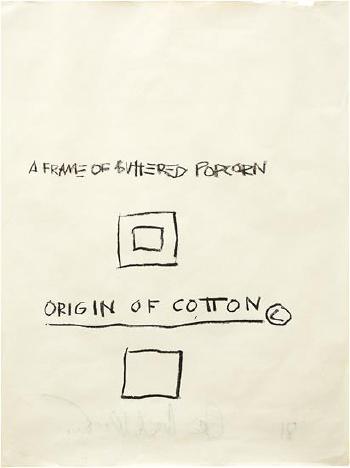 A FRAME OF BUTTERED POPCORN
ORIGIN OF COTTON ©